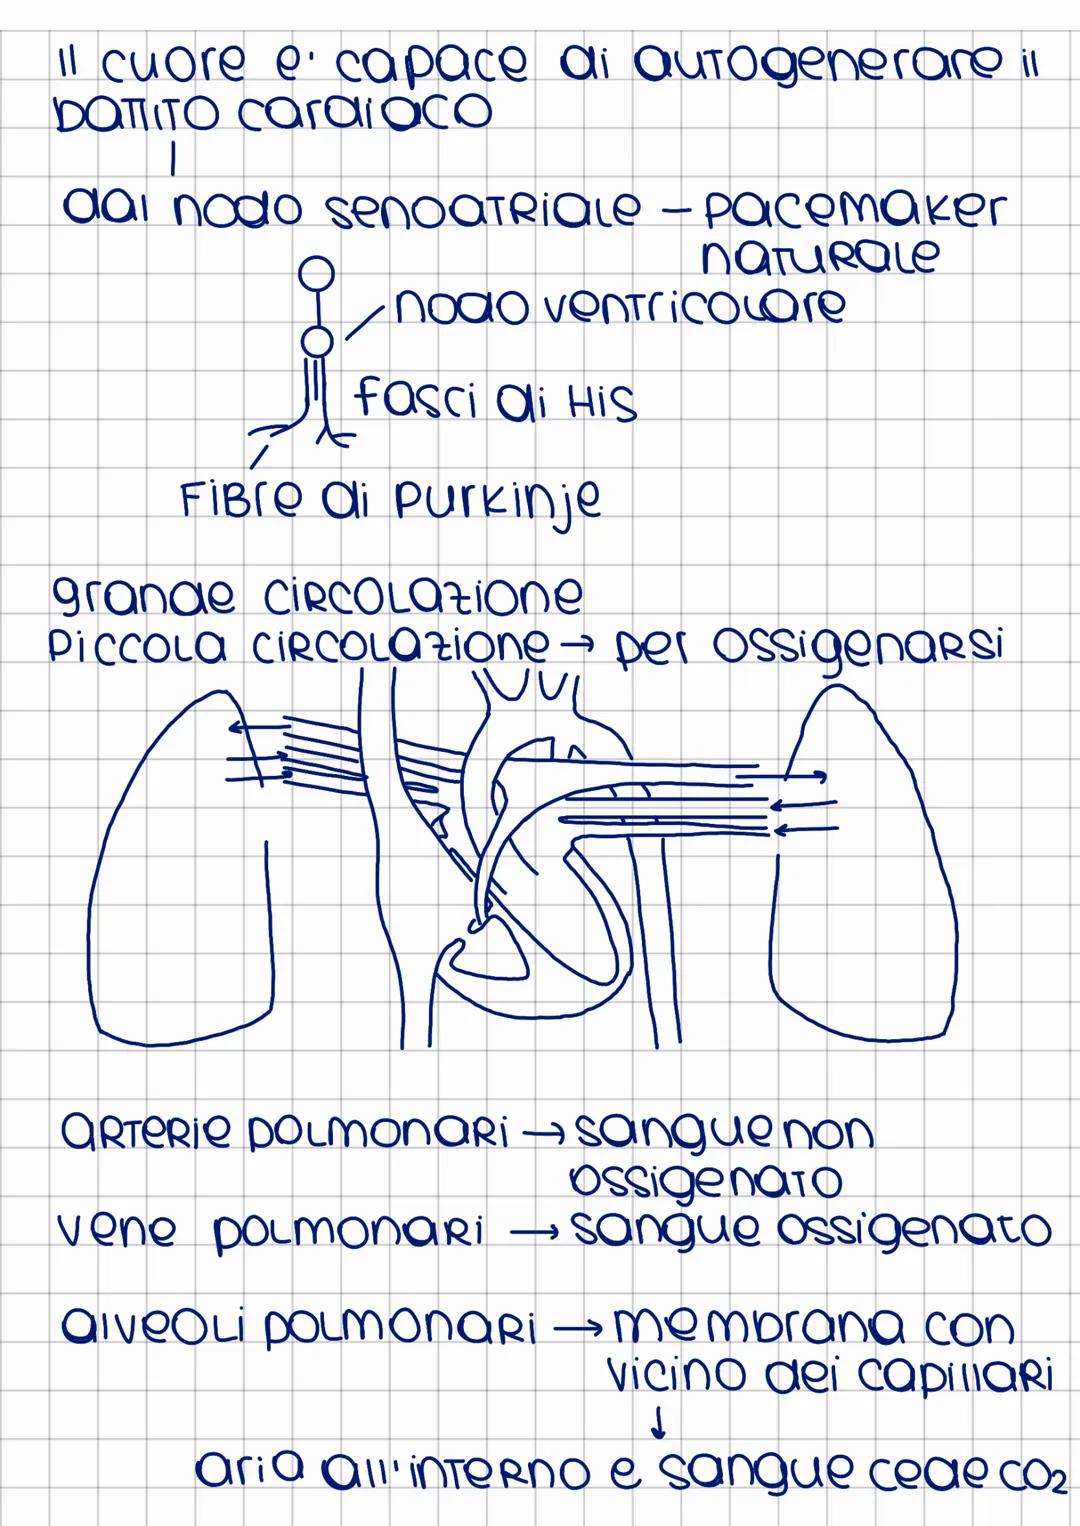 il cuore e' capace di autogenerare il
battito cardiaco
dal nodo senoatriale - pacemaker
naturale
nodo ventricolare
fasci di His
Fibre di Purkinje
grande circolazione
Piccola circolazione → per ossigenarsi
arterie polmonari → sangue non
ossigenato
vene polmonari → sangue ossigenato
alveoli polmonari → membrana con
vicino dei capillari
↓
aria all'interno e sangue cede CO2